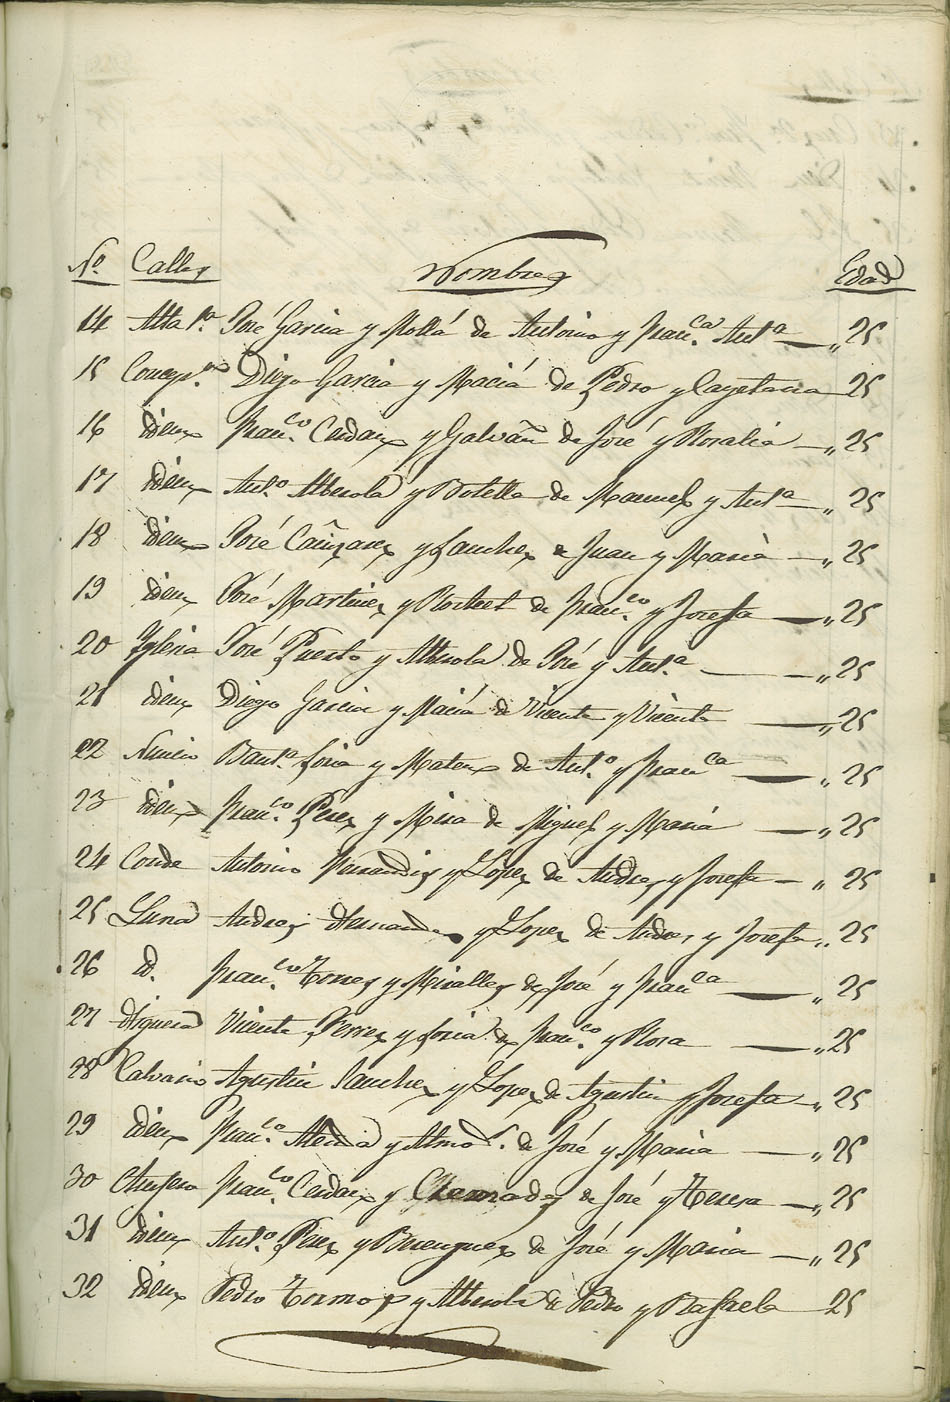 Nº Calles Nombres Edad
14 Alta Pª José Garcia y Mollá de Antonio y Francª Antª „ 25
15 Concepºⁿ Diego Garcia y Maciá de Pedro y Cayetana 25
16 idem Francº Cerdan y Galvañ de José y Rosalia „ 25
17 idem Antº Alberola y Botella de Manuel y Antª „ 25
18 idem José Cañizares y Sanchez de Juan y Maria „ 25
19 idem José Martinez y de Francº y Josefa „ 25
20 Yglesia José Puerto y Alberola de José y Antª „ 25
21 idem Diego Garcia y Maciá de Vicente y Vicenta „ 25
22 Nuncio Bautª Soria y Mateo de Antº y Francª „ 25
23 idem Francº Perez y Mira de Miguel y Maria „ 25
24 Conde Antonio Hernandiz y Lopez de Andres y Josefa „ 25
25 Luna Andres Hernandez y Lopez de Andres y Josefa „ 25
26 id. Francº Torres y Miralles de José y Francª „ 25
27 Higuera Vicente Ferrez y Soria de Francº y Rosa „ 25
28 Calvario Agustin Sanchez y Lopez de Agustin y Josefa „ 25
29 idem Francº y de José y Maria „ 25
30 Francº Cerdan y de José y Teresa „ 25
31 idem Antº Perez y Berenguer de José y Maria „ 25
32 idem Pedro Tormo y Alberola de Pedro y Rafaela 25